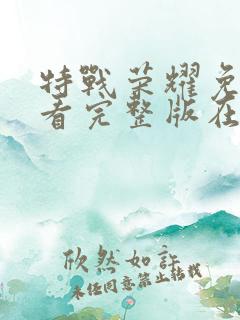 特戰荣耀免
看完整版在
欣然如許
未经同意禁止转载